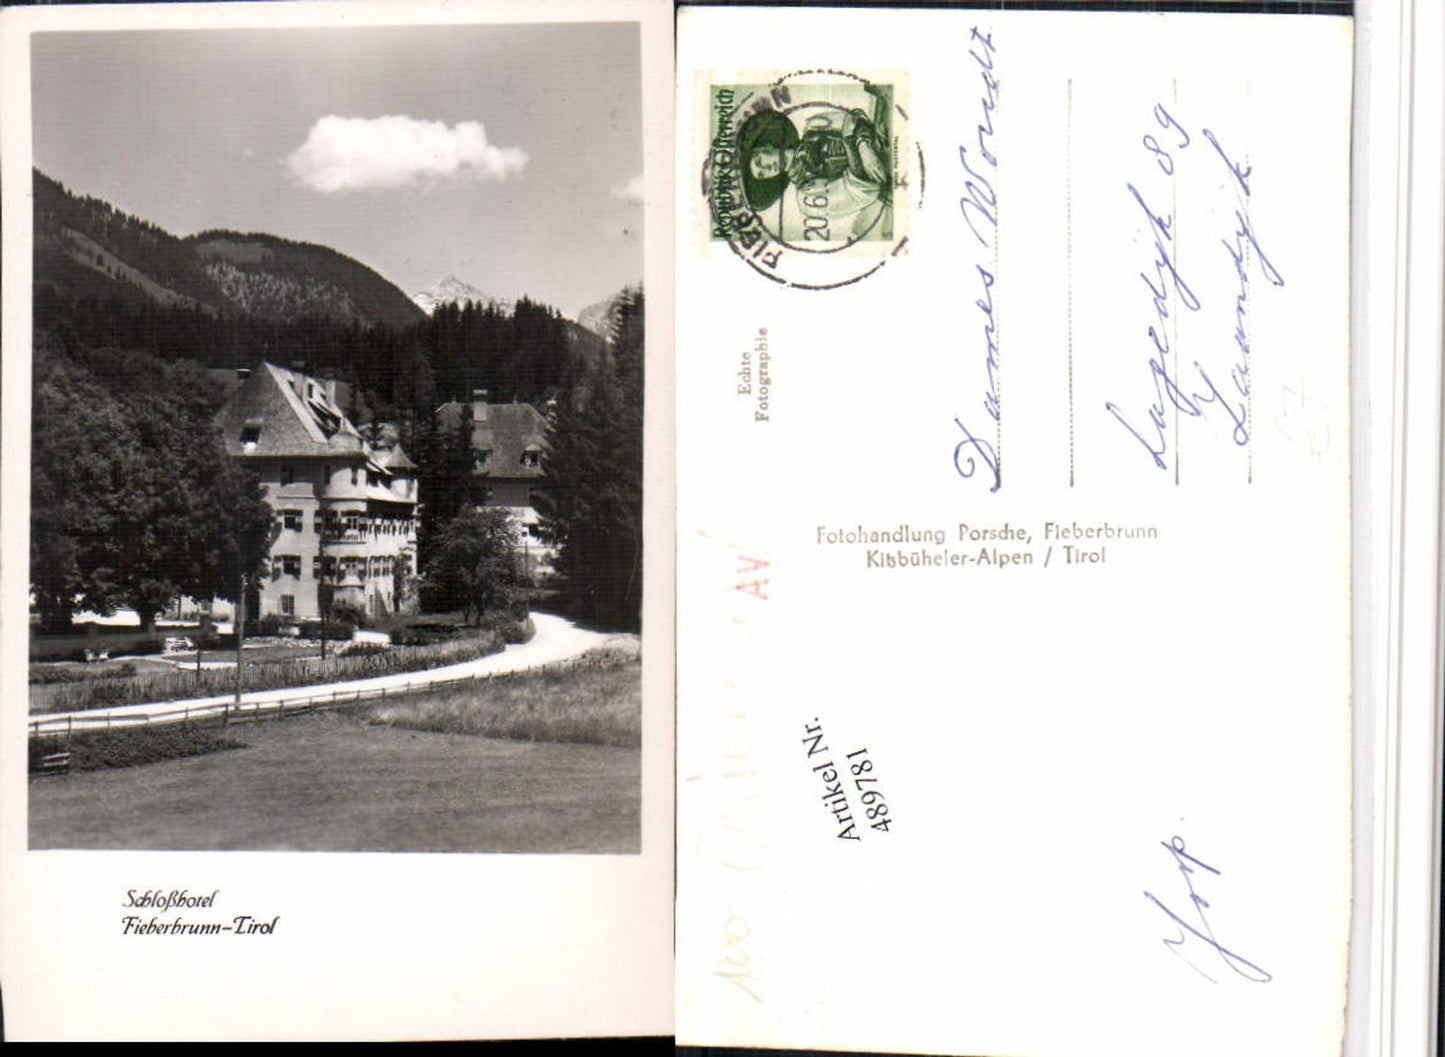 Schloßhotel
Fieberbrunn-Tirol
Republik Österreich
FIEBERBRUNN
20.6
Echte
Fotographie
Fotohandlung Porsche, Fieberbrunn
Kitzbüheler-Alpen / Tirol
Dames Wondt
Lagedijk 89
Zaandijk
AV
Artikel Nr.
489781